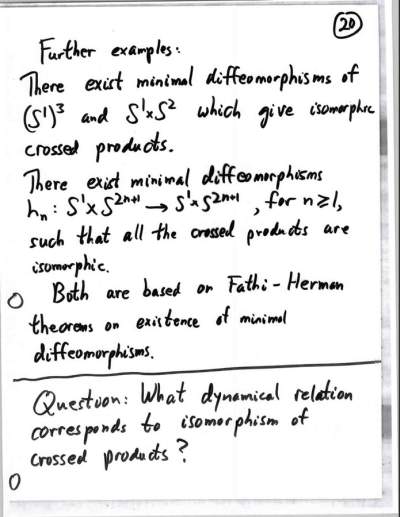 20
Further examples:
There exist minimal diffeomorphisms of
(S¹)³ and S¹×S² which give isomorphic
crossed products.
There exist minimal diffeomorphisms
hₙ : S¹×S²ⁿ⁺¹ → S¹×S²ⁿ⁺¹, for n≥1,
such that all the crossed products are
isomorphic.
Both are based on Fathi-Herman
theorems on existence of minimal
diffeomorphisms.
Question: What dynamical relation
corresponds to isomorphism of
crossed products?